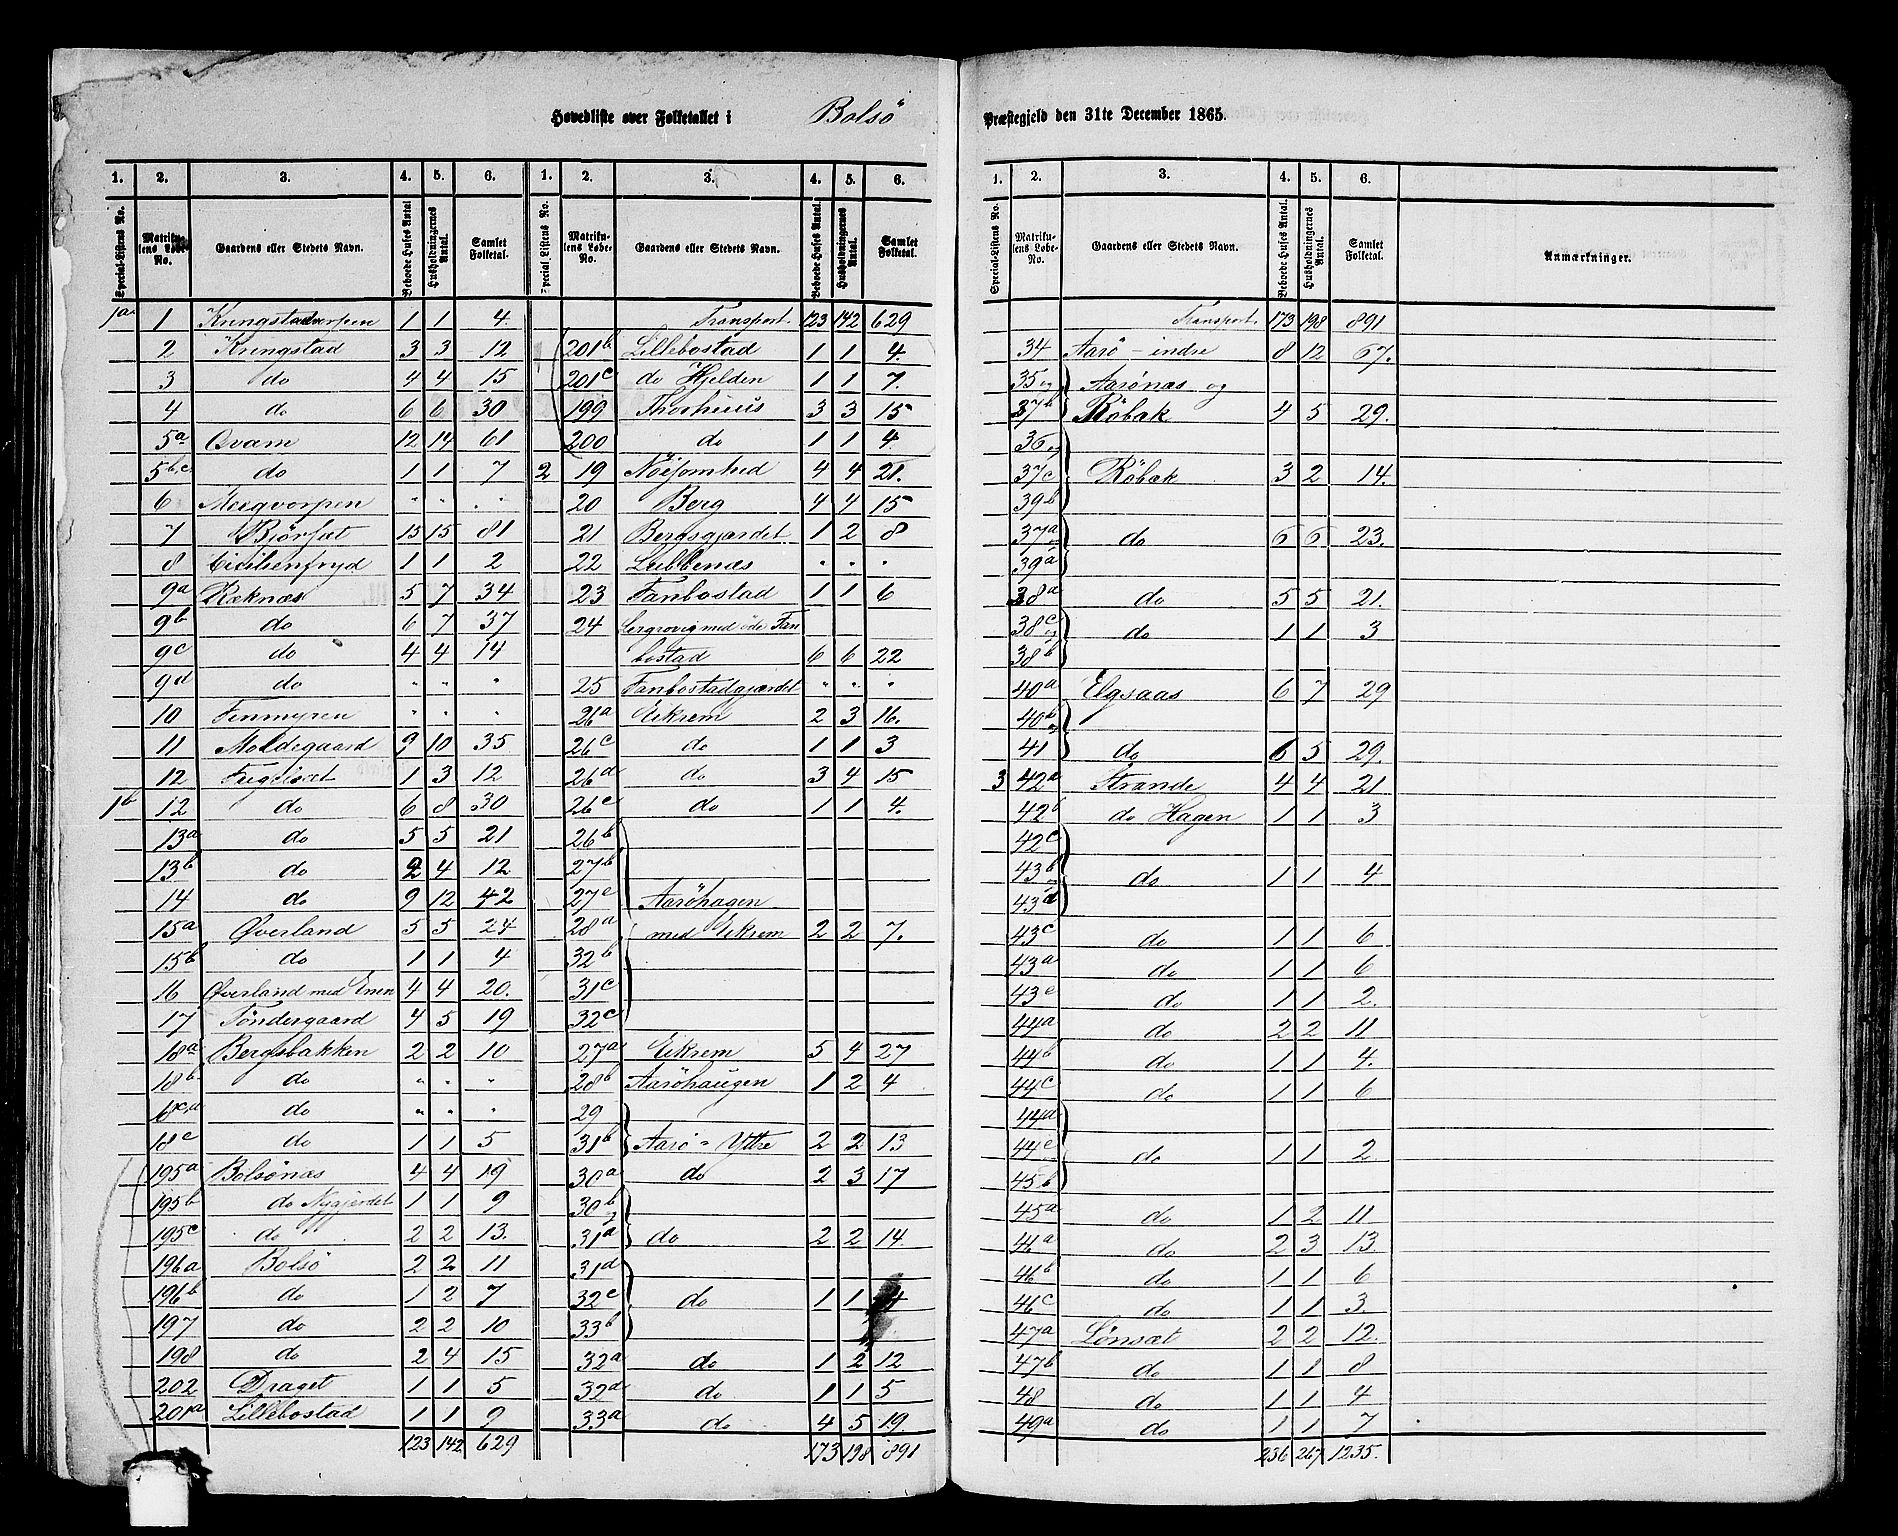 Hovedliste over Folketallet i Bolsö Præstegjeld den 31te December 1865.
1. 2. 3. 4. 5. 6.
Special-Listens No. Matrikulens Løbe-No. Gaardens eller Stedets Navn. Beboede Huses Antal Husholdningernes Antal. Samlet Folketal.
1a 1 Kringstadvorpen 1 1 4.
2 Kringstad 3 3 12
3 do 4 4 15
4 do 6 6 30
5a Qvam 12 14 61
5b,c do 1 1 7
6 Moegvorpen " " "
7 Bjørsæt 15 15 81
8 Cicilienfryd 1 1 2
9a Ræknæs 5 7 34
9b do 6 7 37
9c do 4 4 14
9d do " " "
10 Finmyren " " "
11 Moldegaard 9 10 35
12 Fuglsæt 1 3 12
1b 12 do 6 8 30
13a do 5 5 21
13b do 2 4 12
14 do 9 12 42
15a Øverland 5 5 24
15b do 1 1 4
16 Øverland med Enen 4 4 20.
17 Töndergaard 4 5 19
18a Bergsbakken 2 2 10
18b do " " "
18c,d do " " "
18e do 1 1 5
195a Bolsönæs 4 4 19
195b do Nygjerdet 1 1 9
195c do 2 2 13.
196a Bolsö 2 2 11
196b do 1 2 7
197 do 2 2 10
198 do 2 4 15
202 Draget 1 1 5
201a Lillebostad 1 1 9
123 142 629
1. 2. 3. 4. 5. 6.
Special-Listens No. Matrikulens Løbe-No. Gaardens eller Stedets Navn. Beboede Huses Antal. Husholdningernes Antal. Samlet Folketal.
Transport. 123 142 629
201b Lillebostad 1 1 4.
201c do Hjelden 1 1 7.
199 Thorhuus 3 3 15
200 do 1 1 4.
2 19 Nöisomhed 4 4 21.
20 Berg 4 4 15
21 Bergsgjærdet 1 2 8
22 Lubbenæs " " "
23 Fanbostad 1 1 6
24 Lergrovig med öde Fan
bostad 6 6 22
25 Fanbostadgjærdet " " "
26a Eikrem 2 3 16.
26c do 1 1 3
26d do 3 4 15
26e do 1 1 4.
26b
27b
27c Aaröhagen
28a med Eikrem 2 2 7.
32b
31c
32c
27a Eikrem 5 4 27
28b Aaröhaugen 1 2 4
29
31b Aarö = Yttre 2 2 13
30a do 2 3 17
30b og
31a do 2 2 14.
31d
32e do 1 1 4
33b
32a do 1 2 12
32d do 1 1 5
33a do 4 5 19.
173 198 891
1. 2. 3. 4. 5. 6.
Special-Listens No. Matrikulens Løbe-No. Gaardens eller Stedets Navn. Beboede Huses Antal. Husholdningernes Antal. Samlet Folketal. Anmærkninger.
Transport. 173 198 891
34 Aarö - indre 8 12 67.
35 og Aarönæs og
37b Röbæk 4 5 29.
36 og
37c Röbæk 3 2 14.
39b
37a do 6 6 23.
39a
38a do 5 5 21.
38c og do 1 1 3
38b
40a Elgsaas 6 7 29
40b og
41 do 6 5 29.
3 42a Strande 4 4 21
42b do Hagen 1 1 3
42c
43b og do 1 1 4
43d
43c do 1 1 6
43a do 1 1 6
43e do 1 1 2.
44a do 2 2 11
44b do 1 1 4.
44c do 1 1 6
44d
44e do 1 1 2
45b
45a do 1 2 11
46a do 2 3 13.
46b do 1 1 6
46c do 1 1 3.
47a Lönsæt 2 2 12.
47b do 1 1 8
48 do 1 1 4
49a do 1 1 7
236 267 1235.